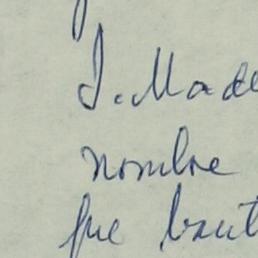 J. Made
nombre
fue baut